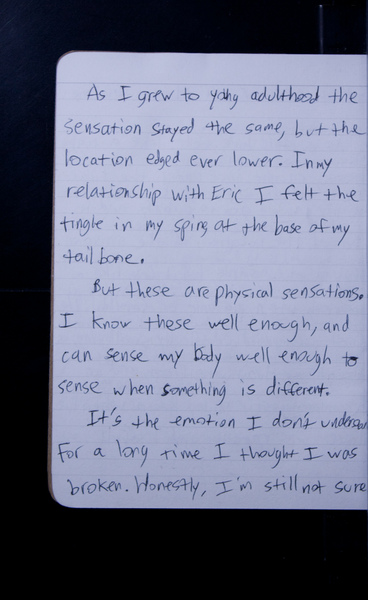 As I grew to yong adulthood the
sensation stayed the same, but the
location edged ever lower. In my
relationship with Eric I felt the
tingle in my spine at the base of my
tail bone.
But these are physical sensations.
I know these well enough, and
can sense my body well enough to
sense when something is different.
It's the emotion I don't understan
For a long time I thought I was
broken. Honestly, I'm still not sure